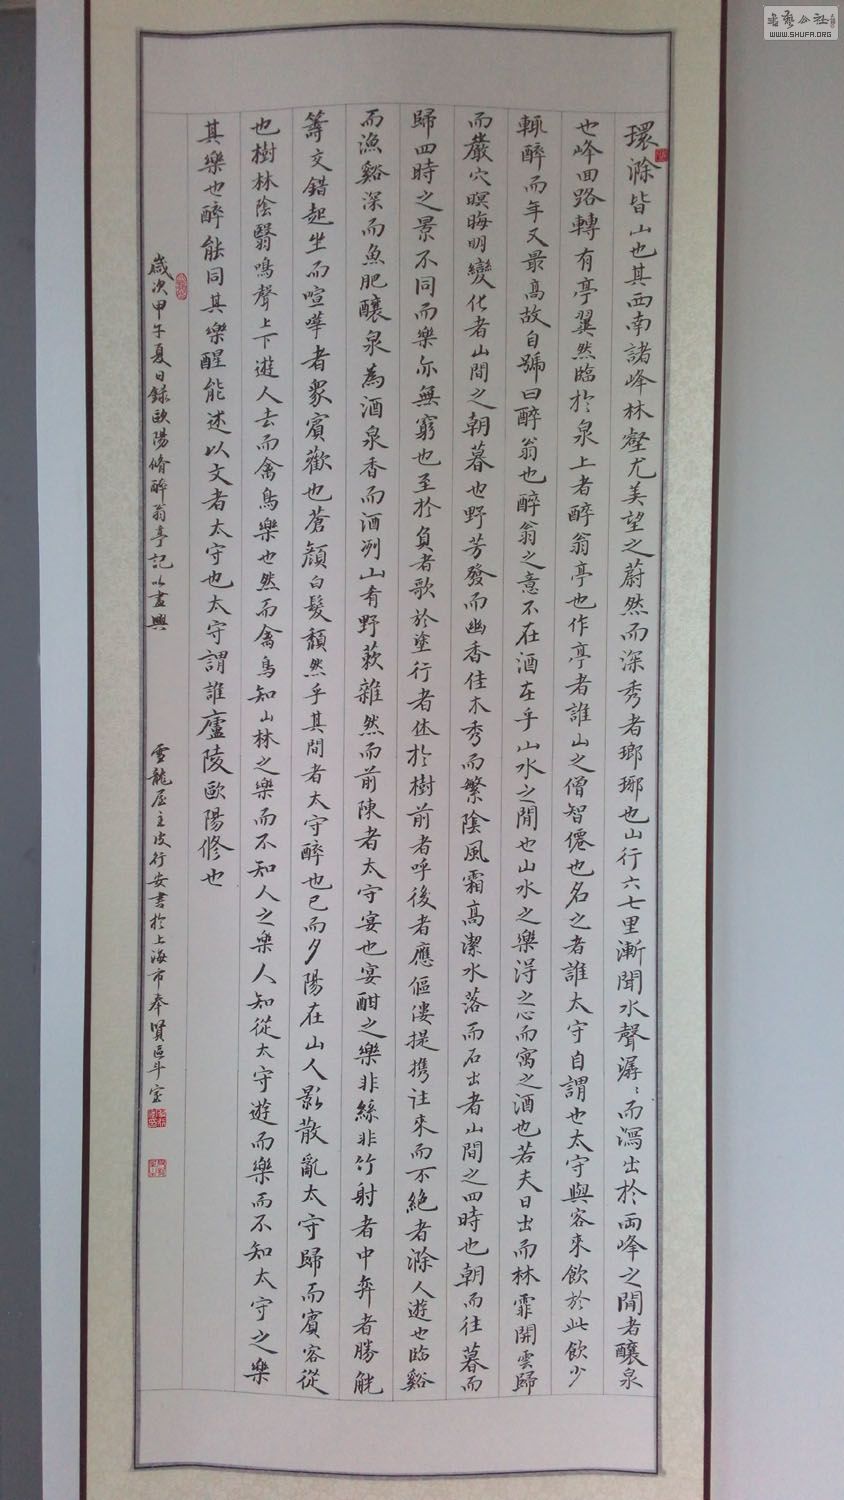 環滁皆山也其西南諸峰林壑尤美望之蔚然而深秀者瑯琊也山行六七里漸聞水聲潺〻而瀉出於兩峰之閒者釀泉
也峰回路轉有亭翼然臨於泉上者醉翁亭也作亭者誰山之僧智僊也名之者誰太守自謂也太守與客來飲於此飲少
輒醉而年又最高故自號曰醉翁也醉翁之意不在酒在乎山水之閒也山水之樂得之心而寓之酒也若夫日出而林霏開雲歸
而巖穴暝晦明變化者山間之朝暮也野芳發而幽香佳木秀而繁陰風霜高潔水落而石出者山間之四時也朝而往暮而
歸四時之景不同而樂亦無窮也至於負者歌於塗行者休於樹前者呼後者應傴僂提攜往來而不絕者滁人遊也臨谿
而漁谿深而魚肥釀泉為酒泉香而酒洌山肴野蔌雜然而前陳者太守宴也宴酣之樂非絲非竹射者中弈者勝觥
籌交錯起坐而喧嘩者衆賓歡也蒼顏白髮頹然乎其間者太守醉也已而夕陽在山人影散亂太守歸而賓客從
也樹林陰翳鳴聲上下遊人去而禽鳥樂也然而禽鳥知山林之樂而不知人之樂人知從太守遊而樂而不知太守之樂
其樂也醉能同其樂醒能述以文者太守也太守謂誰廬陵歐陽修也
歲次甲午夏日錄歐陽脩醉翁亭記以盡興
雪龍屋主皮行安書於上海市奉賢區斗室
WWW.SHUFA.ORG